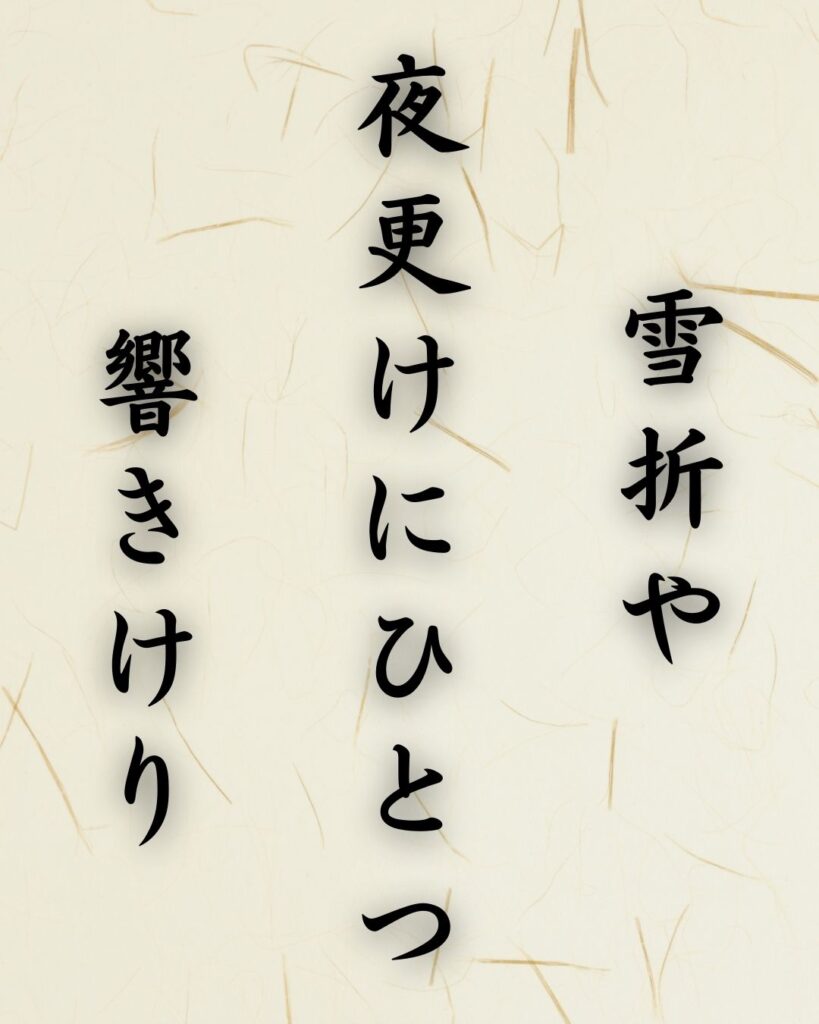 雪折や
夜更けにひとつ
響きけり